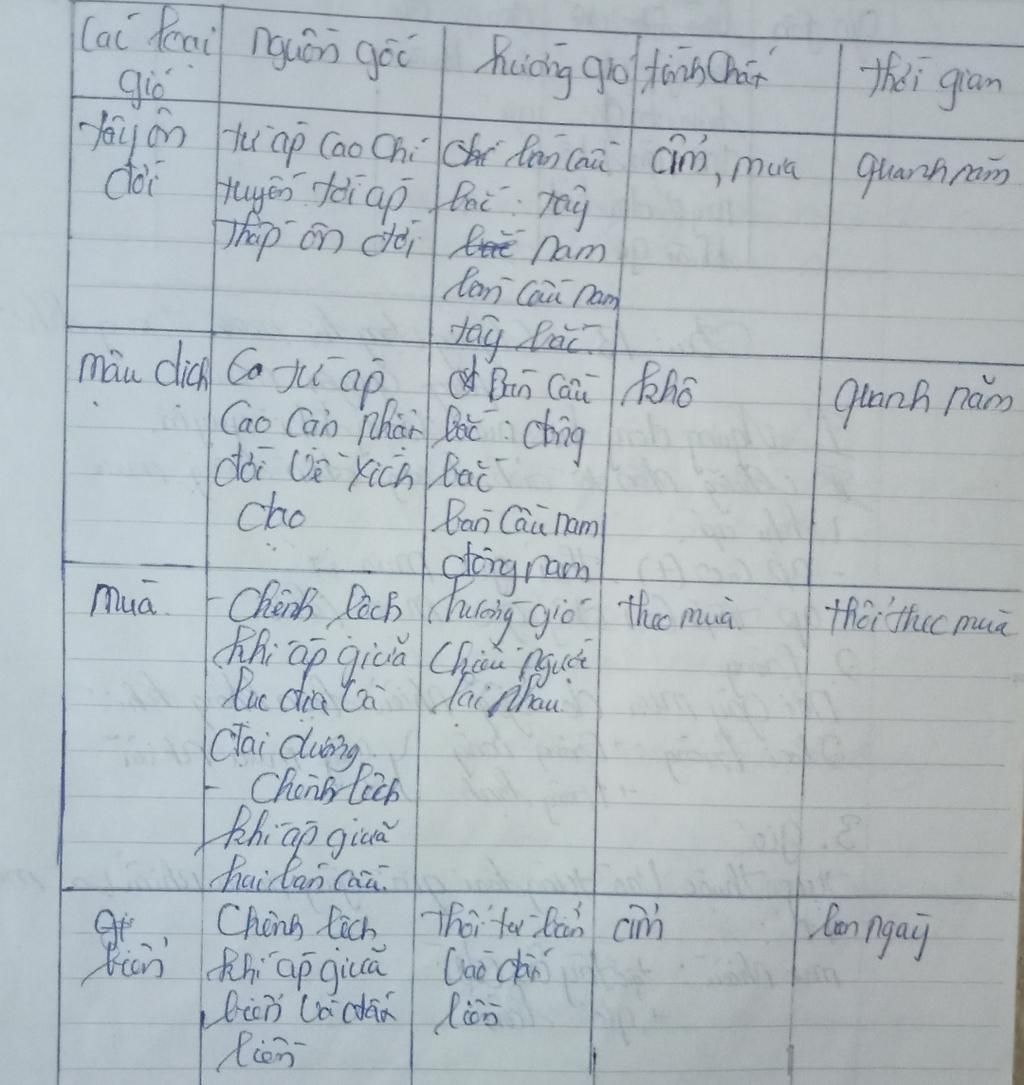 Các loại gió
nguồn gốc
hướng gió
tính chất
thời gian
tây ôn
đới
từ áp cao chí
tuyến tới áp
thấp ôn đới
bán cầu
bắc: tây
nam
bán cầu nam
tây bắc.
ẩm, mưa
quanh năm
mậu dịch
từ áp
cao cận nhiệt
đới về xích
đạo
ở Bán cầu
bắc: đông
bắc
bán cầu nam
đông nam
khô
quanh năm
mùa
- Chênh lệch
khí áp giữa
lục địa và
đại dương
- Chênh lệch
khí áp giữa
hai bán cầu.
hướng gió
chiều ngược
lại nhau.
theo mùa
thổi theo mùa
biển
Chênh lệch
khí áp giữa
biển và đất
liền
thổi từ biển
vào đất
liền
ẩm
ban ngày